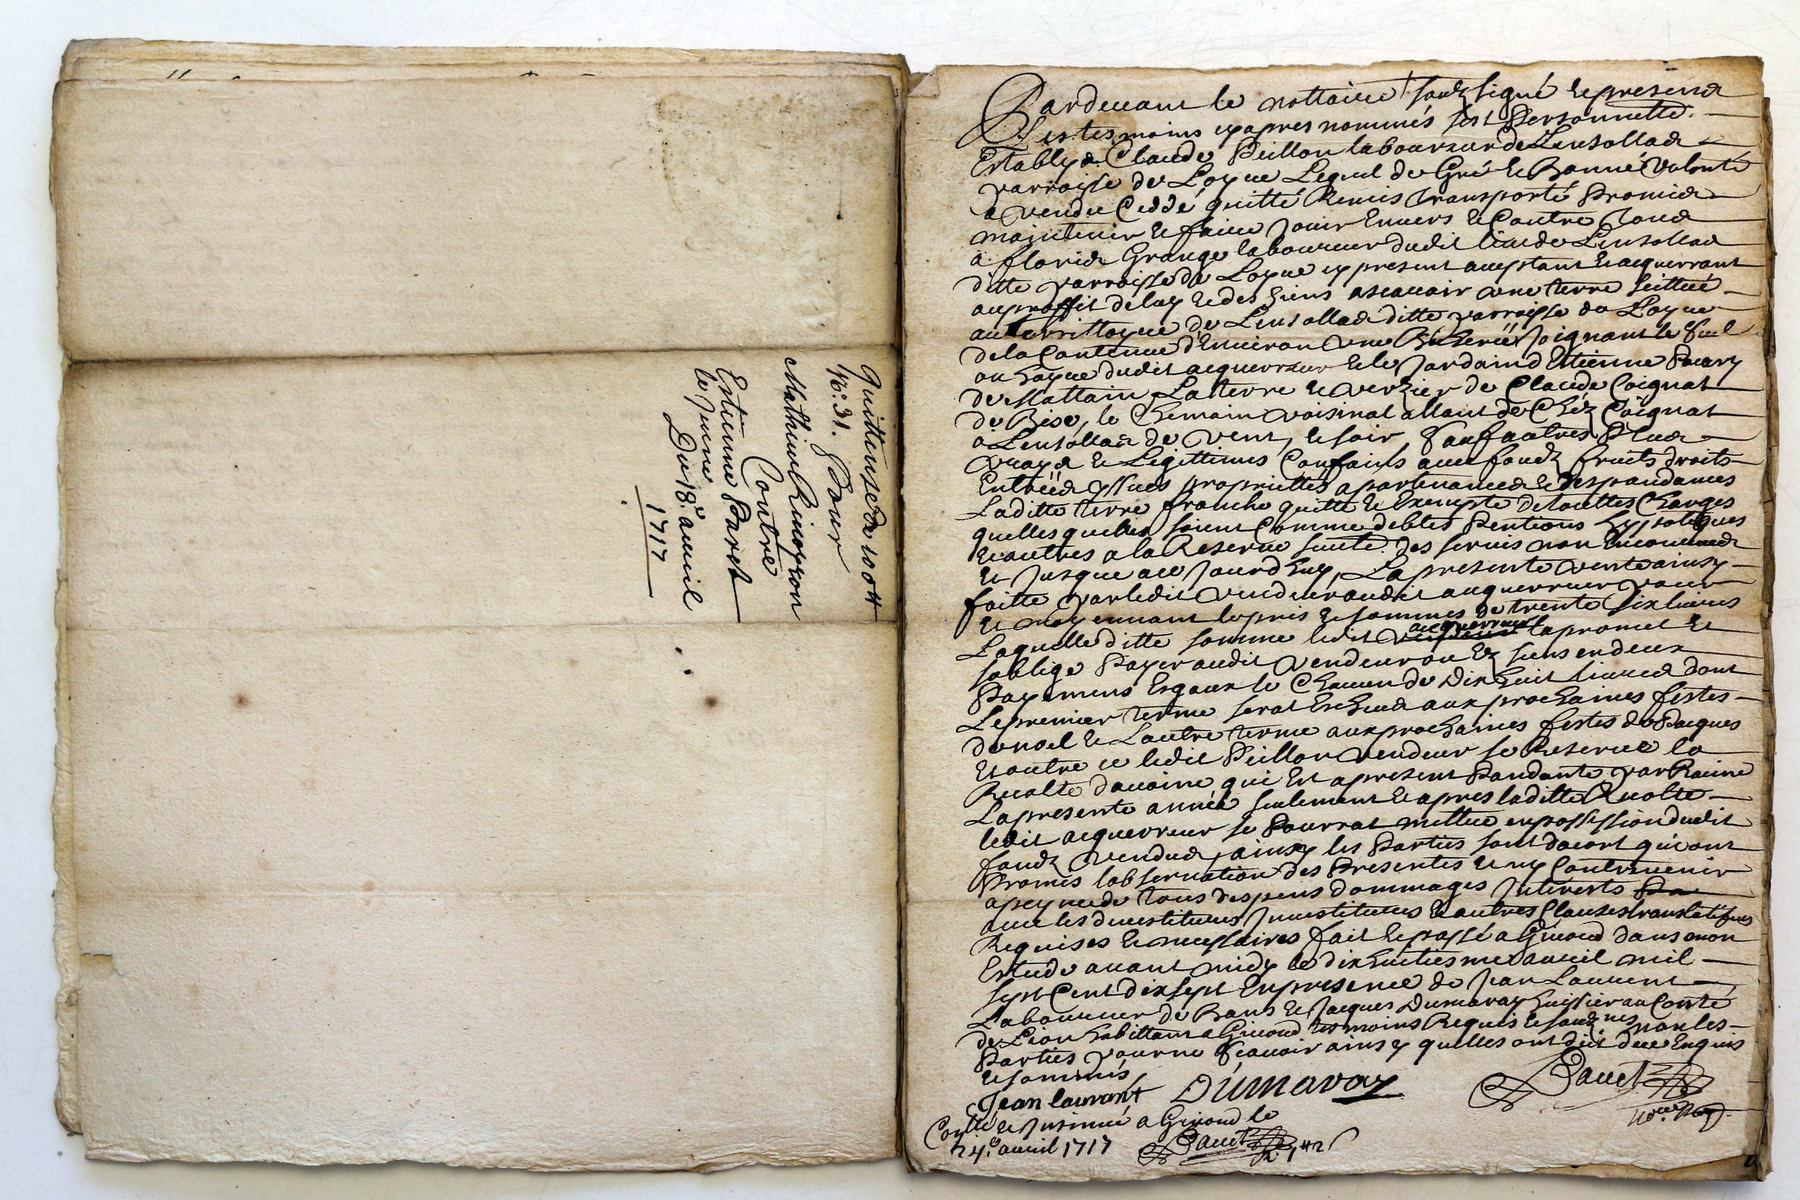 Quittense de 100 tt
N.° 31. Pour
Mathieu
Contre
Estienne Paret
le Jeune
Du 18.e auuril
1717
Pardeuant le nottaire soubz signé et presens
Les tesmoins cyapres nommés fut Personnellem.
Estably Claude Peillon laboureur de Lensollad
parroisse de Loyue Lequel de Gré et Bonne Volonté
a vendu Ceddé quitté Remis transporté Promis
maintenir et faire Jouir Enuers et Contre Tous
a floris Grange laboureur dudit lieu de Lensollad
ditte parroisse de Loyue cy present aceptant et acquerrant
au proffit de luy et des siens ascauoir une terre scittué
au territtoyre de Lensollad ditte parroisse de Loyue
de la Contenue d'Enuiron une Bicherée Joignant le
ou haye dudit acquerreur et le Jardain d'Etienne
de Mattain La terre et Verzier de Claude Coignat
de Bise, le Chemain voisinal allant de Chéz Coignat
a Lensollad de vent, et soir, sauf autres Plus
Vrays et Legittimes Confains auec fondz fruits droits
Entrées yssues propriettes apartenances et despandances
Laditte terre franche quitte et Exempte de touttes Charges
quelles quelles soient Comme debtes Pentions hypoteques
et autres a la Reserue des seruis non
et Jusque a ce Jourd'huy, La presente Vente ainsy
faitte par ledit Vendeur audit acquerreur pour
et moyennant le pris et sommes de trente six liures
Laquelle ditte somme ledit acquerreur la promet et
soblige Payer audit Vendeur ou Ez siens en deux
Payemens Esgaux le Chacun de Dix huit liures dont
Le premier terme serat Escheus aux prochaines festes
de noel et Lautre terme aux prochaines festes de Pacques
Et outre ce ledit Peillon Vendeur se Reserue la
Recolte dauoine qui Est apresent Pandante par Racine
La presente année seulement et apres laditte Recolte
ledit acquerreur se Pourrat mettre en possession dudit
fondz Vendus, ainsy les Parties sont dacort qui ont
Promis lobseruation des Presentes et ny Contreuenir
a peyne de tous despens dommages Interests
auec les deuestitures Inuestitures et autres Clauses translatifues
Requises et necessaires fait et passé a Giuord dans mon
Estude auant midy le dixhuictiesme auuril mil
sept Cent dix sept En presence de Jean Laurent
Laboureur de Bans et Jacques Dumaray huissier au Comté
de Lion habittant a Giuord tesmoins Requis et soubz nes non les
Parties pour ne scauoir ainsy quelles ont dit de ce Enquis
et sommés
Jean laurant Dumaray
Conllé et Insinué a Giuord le
24.e auuril 1717